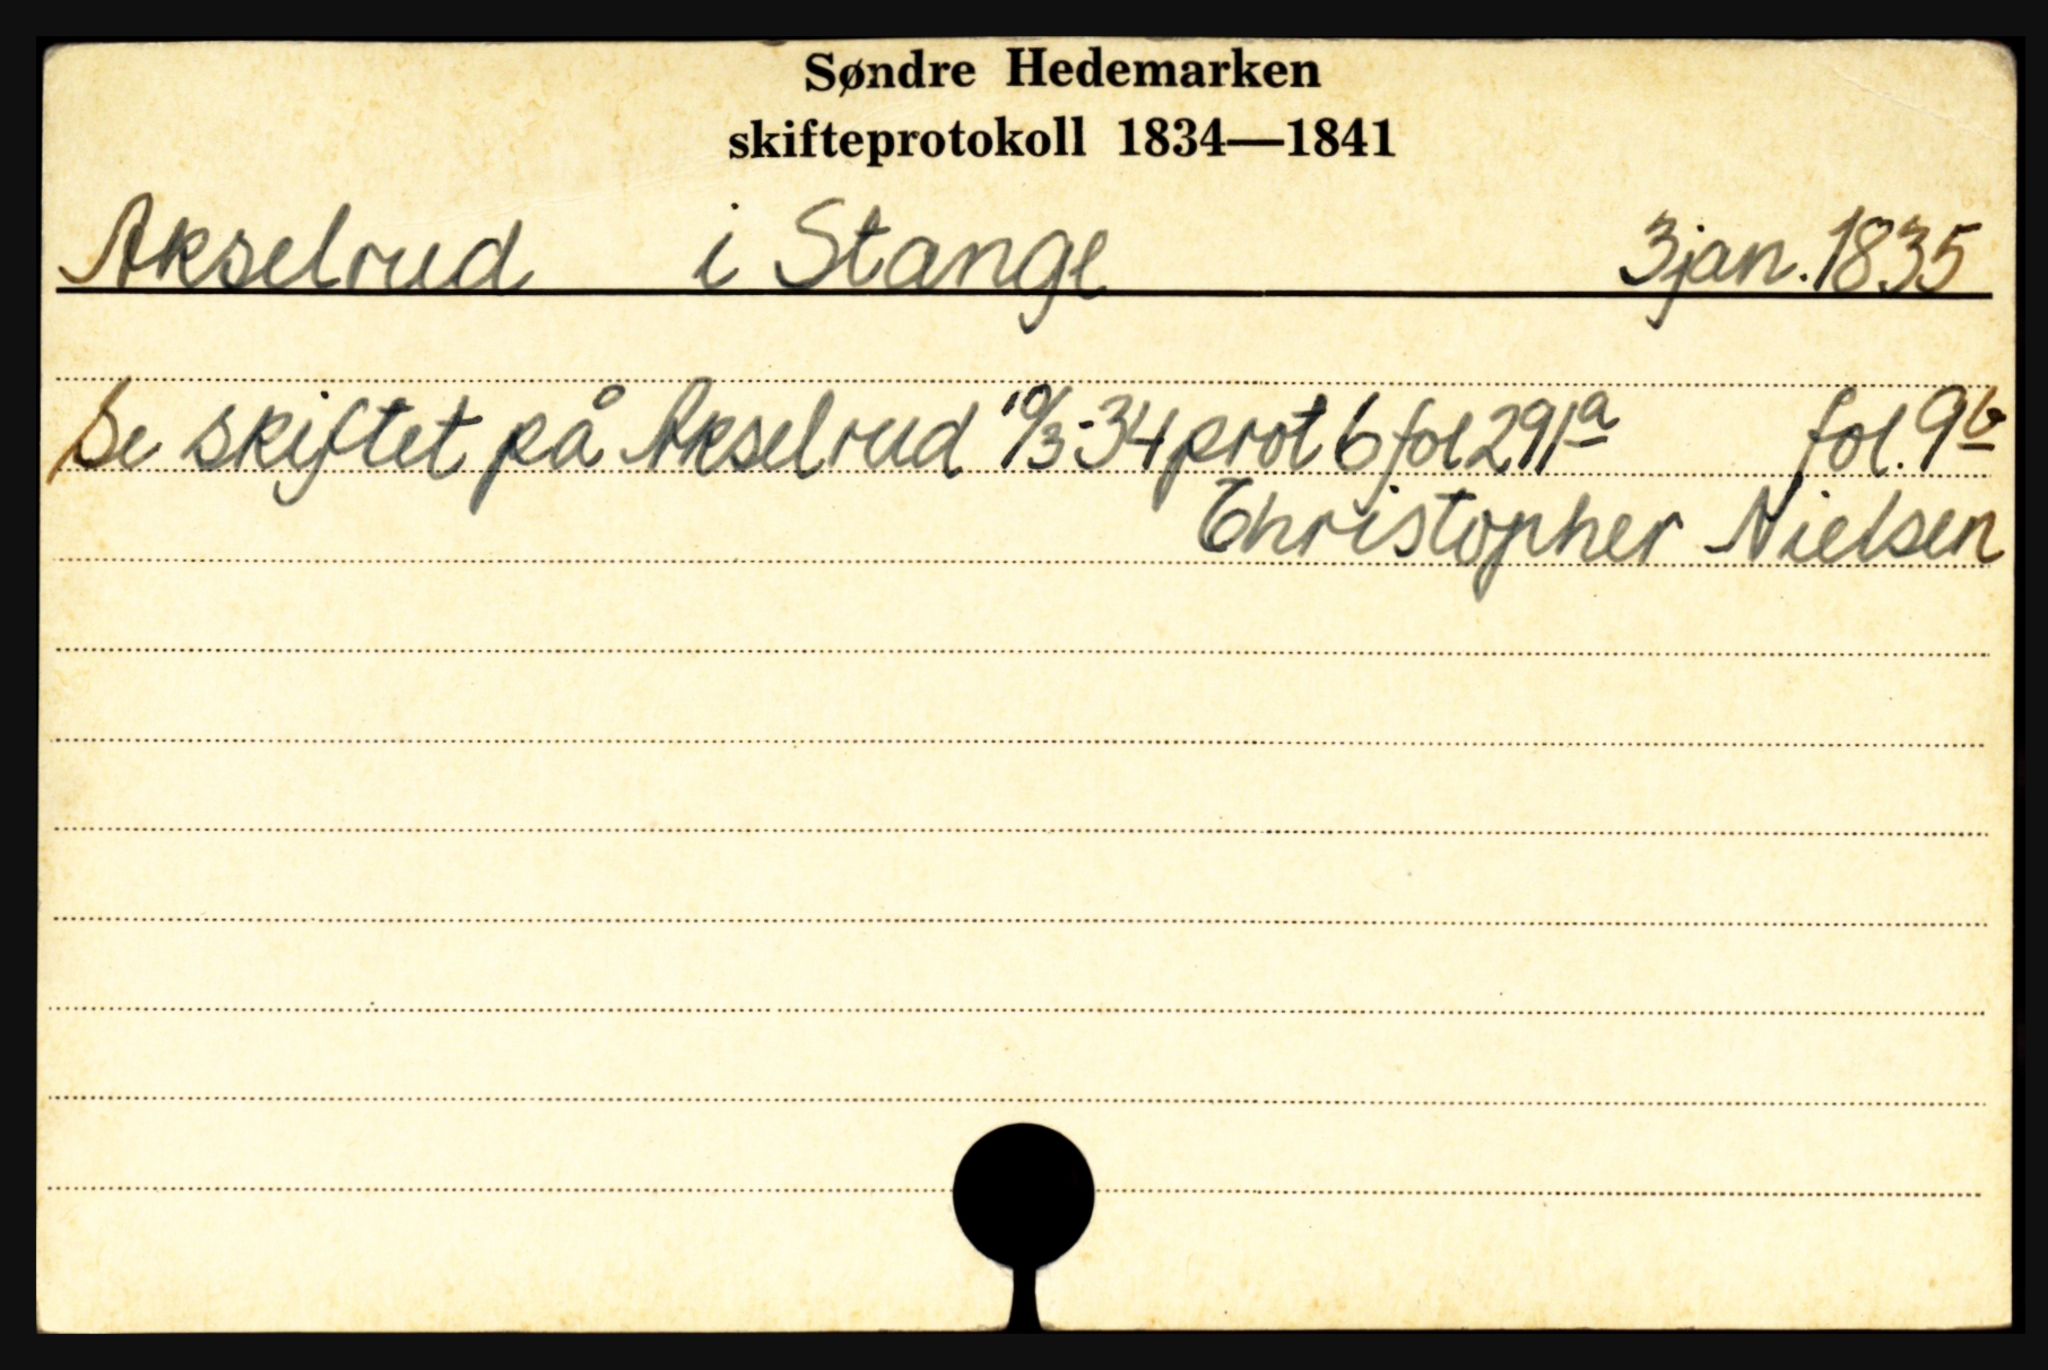 Søndre Hedemarken
skifteprotokoll 1834—1841
Akselrud i Stange 3 jan. 1835
Se skiftet på Akselrud 10/3-34 prot 6 fol 291a fol. 9b
Christopher Nielsen